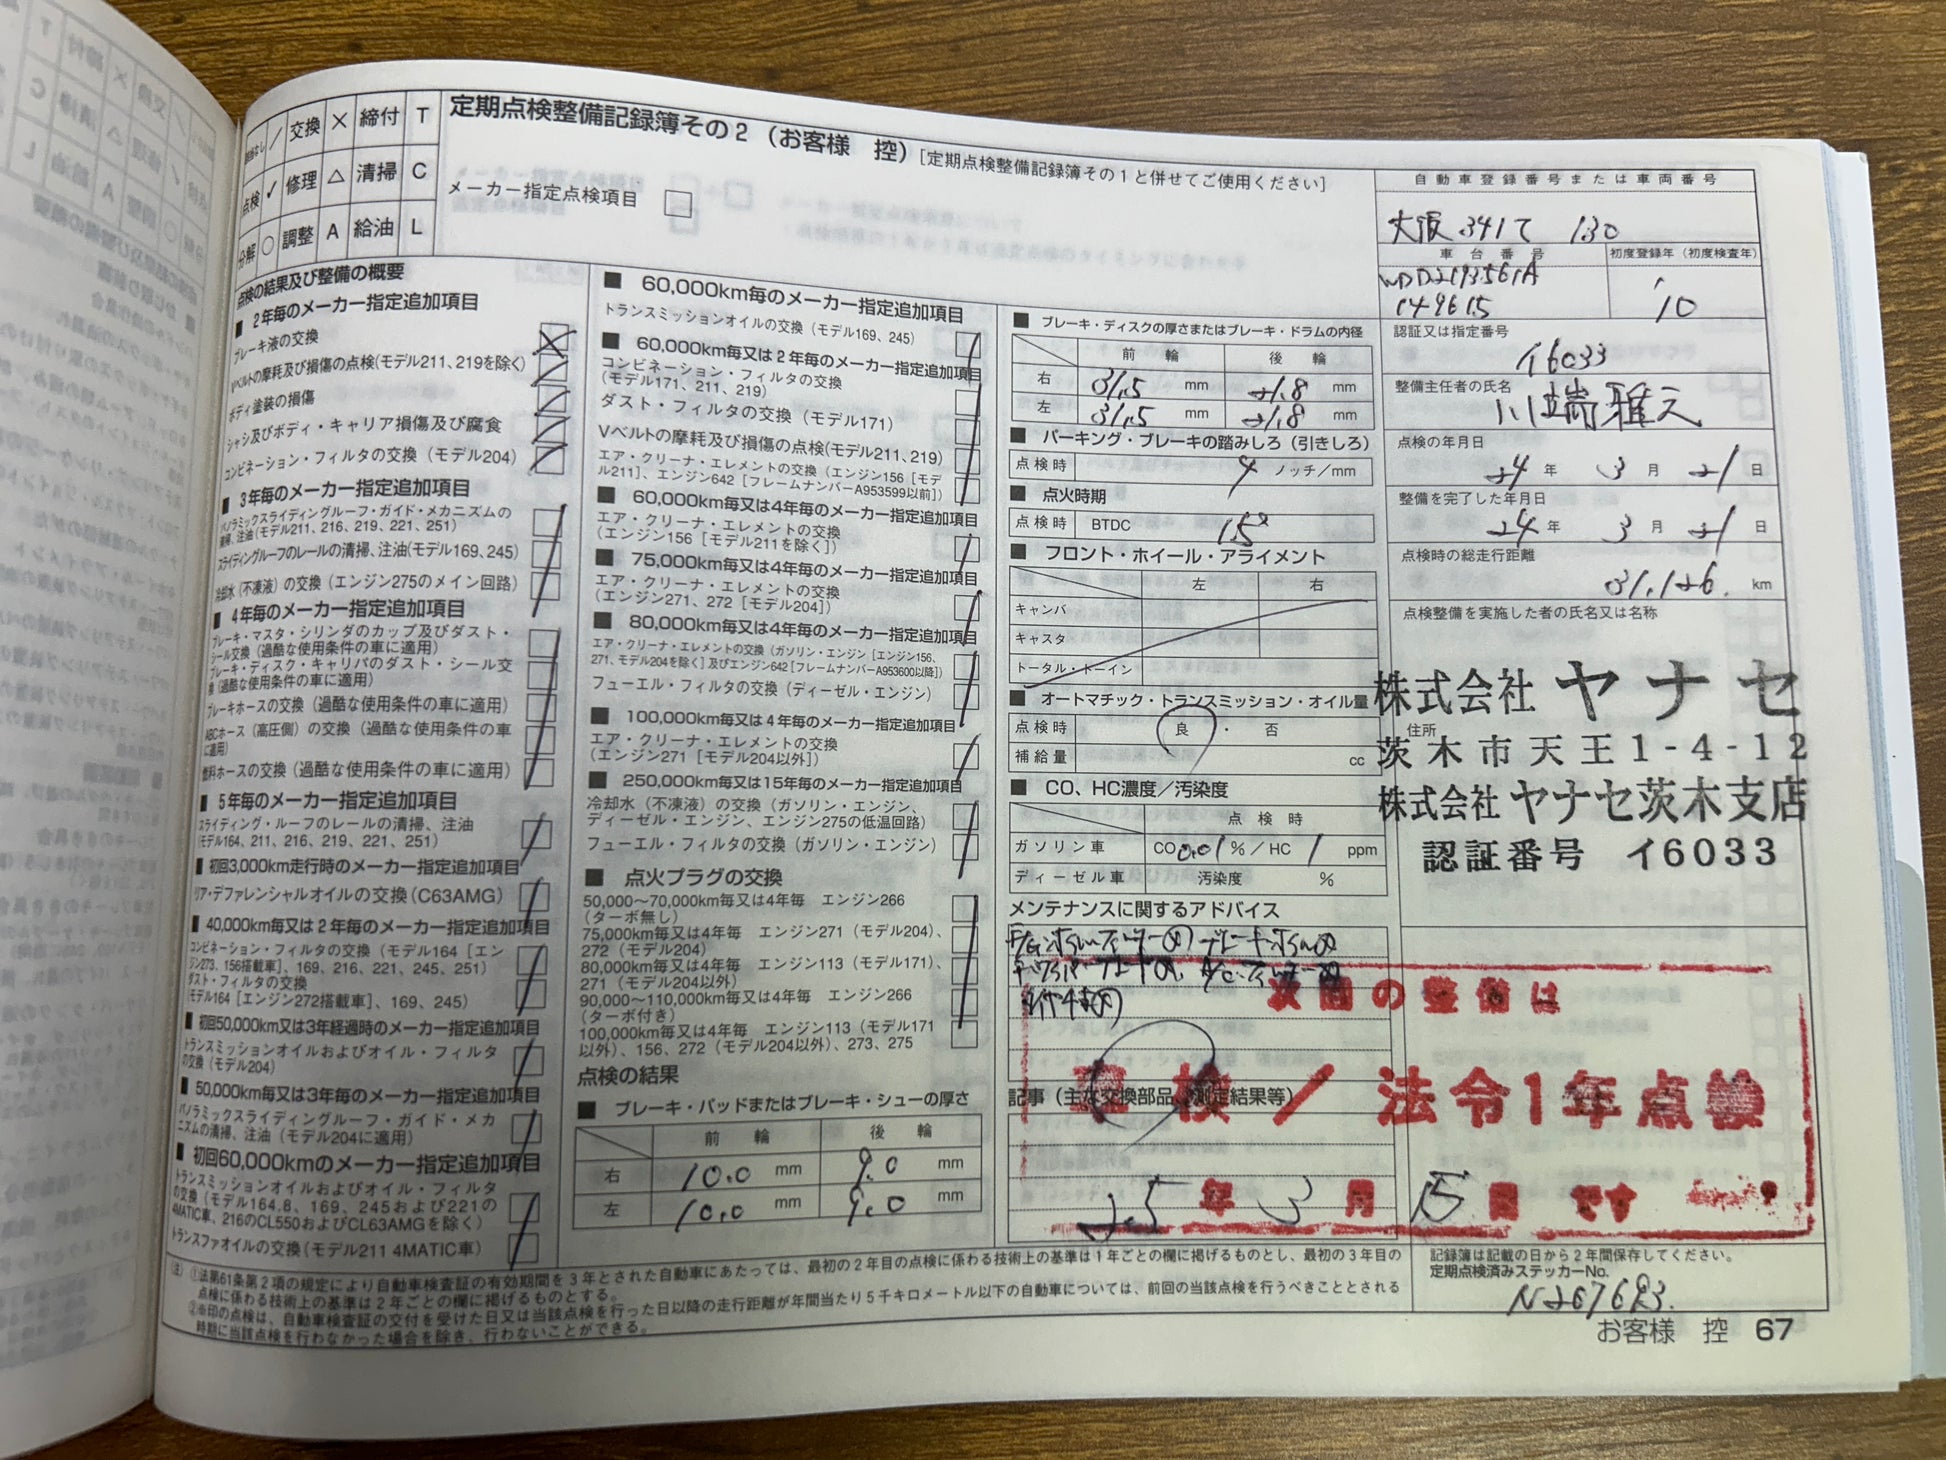 該当なし / 交換 × 締付 T
点検 ✓ 修理 △ 清掃 C
分解 ○ 調整 A 給油 L
定期点検整備記録簿その2（お客様 控）［定期点検整備記録簿その1と併せてご使用ください］
メーカー指定点検項目
点検の結果及び整備の概要
■ 2年毎のメーカー指定追加項目
ブレーキ液の交換
Vベルトの摩耗及び損傷の点検(モデル211、219を除く)
ボディ塗装の損傷
シャシ及びボディ・キャリア損傷及び腐食
コンビネーション・フィルタの交換（モデル204）
■ 3年毎のメーカー指定追加項目
パノラミックスライディングルーフ・ガイド・メカニズムの
清掃、注油(モデル211、216、219、221、251)
スライディングルーフのレールの清掃、注油(モデル169、245)
冷却水（不凍液）の交換（エンジン275のメイン回路）
■ 4年毎のメーカー指定追加項目
ブレーキ・マスタ・シリンダのカップ及びダスト・
シール交換（過酷な使用条件の車に適用）
ブレーキ・ディスク・キャリパのダスト・シール交
換（過酷な使用条件の車に適用）
ブレーキホースの交換（過酷な使用条件の車に適用）
ABCホース（高圧側）の交換（過酷な使用条件の車
に適用）
燃料ホースの交換（過酷な使用条件の車に適用）
■ 5年毎のメーカー指定追加項目
スライディング・ルーフのレールの清掃、注油
（モデル164、211、216、219、221、251）
■ 初回3,000km走行時のメーカー指定追加項目
リア・デファレンシャルオイルの交換（C63AMG）
■ 40,000km毎又は2年毎のメーカー指定追加項目
コンビネーション・フィルタの交換（モデル164［エン
ジン273、156搭載車］、169、216、221、245、251）
ダスト・フィルタの交換
（モデル164［エンジン272搭載車］、169、245）
■ 初回50,000km又は3年経過時のメーカー指定追加項目
トランスミッションオイルおよびオイル・フィルタ
の交換（モデル204）
■ 50,000km毎又は3年毎のメーカー指定追加項目
パノラミックスライディングルーフ・ガイド・メカ
ニズムの清掃、注油（モデル204に適用）
■ 初回60,000kmのメーカー指定追加項目
トランスミッションオイルおよびオイル・フィルタ
の交換（モデル164.8、169、245および221の
4MATIC車、216のCL550およびCL63AMGを除く）
トランスファオイルの交換（モデル211 4MATIC車）
■ 60,000km毎のメーカー指定追加項目
トランスミッションオイルの交換（モデル169、245）
■ 60,000km毎又は2年毎のメーカー指定追加項目
コンビネーション・フィルタの交換
（モデル171、211、219）
ダスト・フィルタの交換（モデル171）
Vベルトの摩耗及び損傷の点検(モデル211、219)
エア・クリーナ・エレメントの交換（エンジン156［モデ
ル211］、エンジン642［フレームナンバーA953599以前］）
■ 60,000km毎又は4年毎のメーカー指定追加項目
エア・クリーナ・エレメントの交換
（エンジン156［モデル211を除く］）
■ 75,000km毎又は4年毎のメーカー指定追加項目
エア・クリーナ・エレメントの交換
（エンジン271、272［モデル204］）
■ 80,000km毎又は4年毎のメーカー指定追加項目
エア・クリーナ・エレメントの交換（ガソリン・エンジン［エンジン156、
271、モデル204を除く］及びエンジン642［フレームナンバーA953600以降］）
フューエル・フィルタの交換（ディーゼル・エンジン）
■ 100,000km毎又は4年毎のメーカー指定追加項目
エア・クリーナ・エレメントの交換
（エンジン271［モデル204以外］）
■ 250,000km毎又は15年毎のメーカー指定追加項目
冷却水（不凍液）の交換（ガソリン・エンジン、
ディーゼル・エンジン、エンジン275の低温回路）
フューエル・フィルタの交換（ガソリン・エンジン）
■ 点火プラグの交換
50,000～70,000km毎又は4年毎 エンジン266
（ターボ無し）
75,000km毎又は4年毎 エンジン271（モデル204）、
272（モデル204）
80,000km毎又は4年毎 エンジン113（モデル171）、
271（モデル204以外）
90,000～110,000km毎又は4年毎 エンジン266
（ターボ付き）
100,000km毎又は4年毎 エンジン113（モデル171
以外）、156、272（モデル204以外）、273、275
点検の結果
■ ブレーキ・パッドまたはブレーキ・シューの厚さ
前輪 後輪
右 10.0 mm 9.0 mm
左 10.0 mm 9.0 mm
■ ブレーキ・ディスクの厚さまたはブレーキ・ドラムの内径
前輪 後輪
右 31.5 mm 21.8 mm
左 31.5 mm 21.8 mm
■ パーキング・ブレーキの踏みしろ（引きしろ）
点検時 4 ノッチ／mm
■ 点火時期
点検時 BTDC 15°
■ フロント・ホイール・アライメント
左 右
キャンバ
キャスタ
トータル・トーイン
■ オートマチック・トランスミッション・オイル量
点検時 良・否
補給量 cc
■ CO、HC濃度／汚染度
点検時
ガソリン車 CO 0.01 %／HC 1 ppm
ディーゼル車 汚染度 %
メンテナンスに関するアドバイス
記事（主な交換部品、測定結果等）
自動車登録番号または車両番号
大阪 341 て 130
車台番号 初度登録年（初度検査年）
WDD2193561A
149615 10
認証又は指定番号
イ6033
整備主任者の氏名
川端雅之
点検の年月日
24年 3月 21日
整備を完了した年月日
24年 3月 21日
点検時の総走行距離
31,126. km
点検整備を実施した者の氏名又は名称
株式会社 ヤナセ
住所
茨木市天王1-4-12
株式会社 ヤナセ茨木支店
認証番号 イ6033
次回の整備は
車検／法令1年点検
25年3月15日です
記録簿は記載の日から2年間保存してください。
定期点検済みステッカーNo.
N267623.
（注）①法第61条第2項の規定により自動車検査証の有効期間を3年とされた自動車にあたっては、最初の2年目の点検に係わる技術上の基準は1年ごとの欄に掲げるものとし、最初の3年目の
点検に係わる技術上の基準は2年ごとの欄に掲げるものとする。
②※印の点検は、自動車検査証の交付を受けた日又は当該点検を行った日以降の走行距離が年間当たり5千キロメートル以下の自動車については、前回の当該点検を行うべきこととされる
時期に当該点検を行わなかった場合を除き、行わないことができる。
お客様 控 67